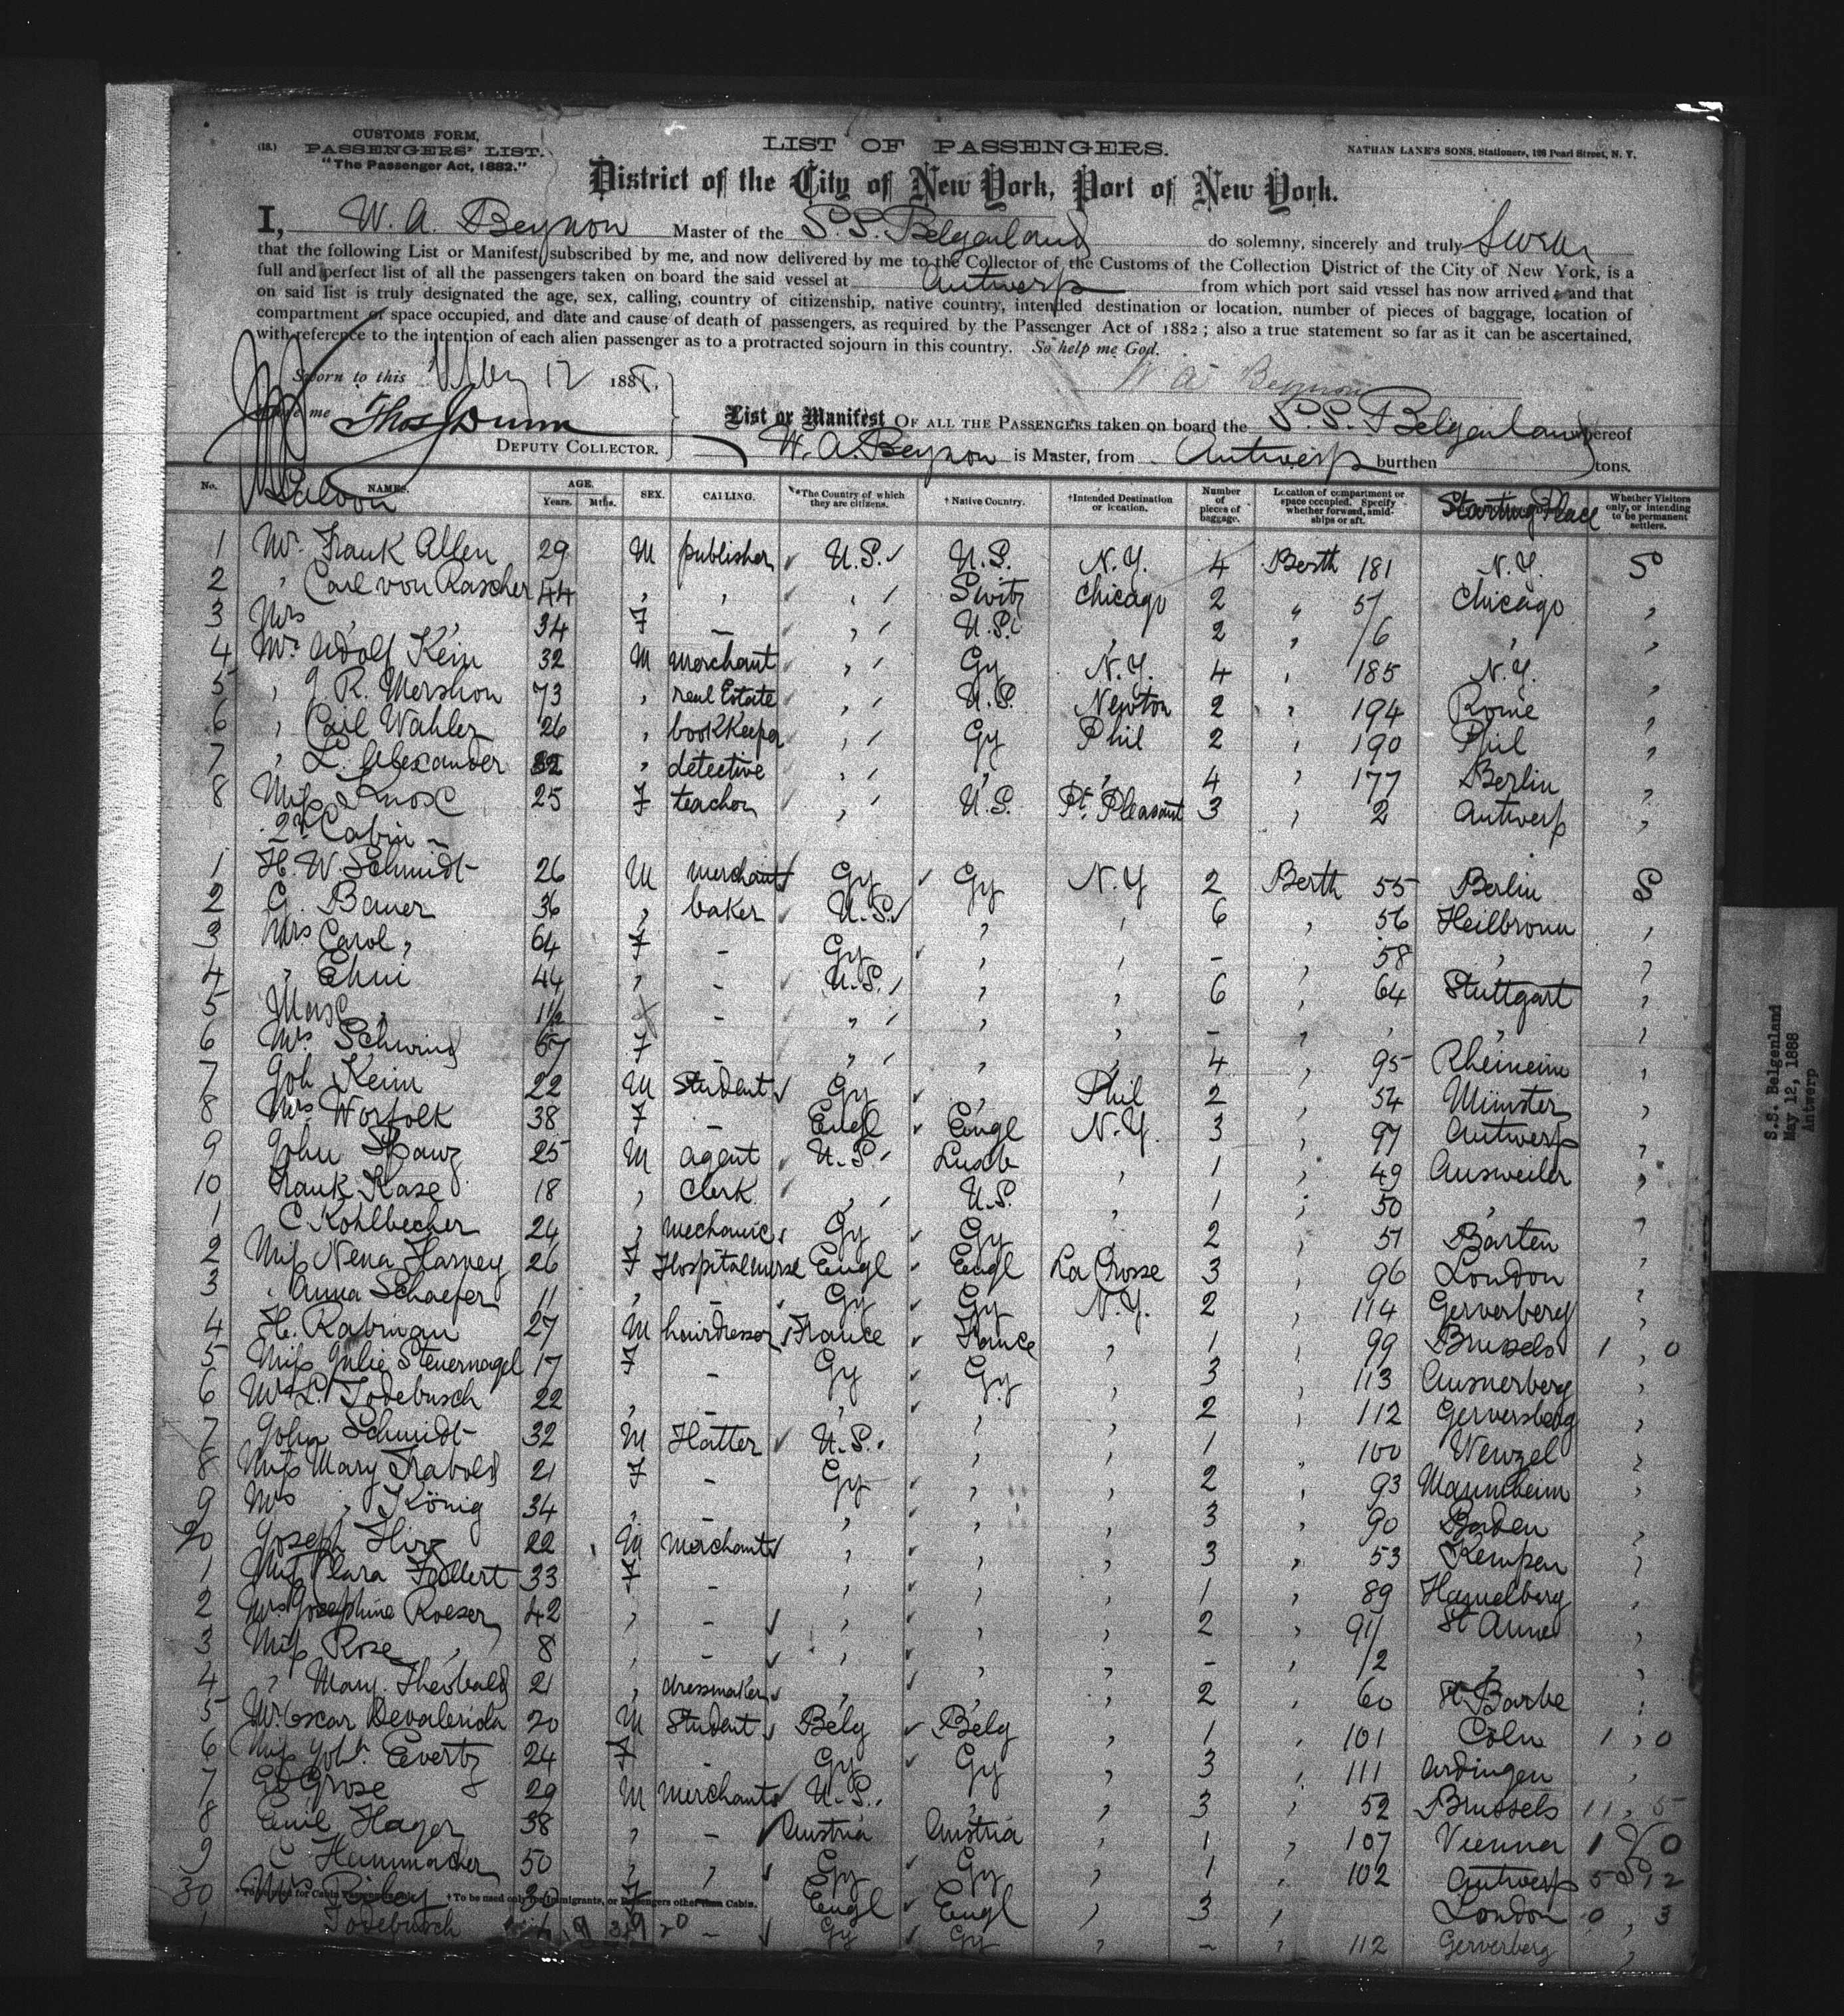 (18.)
CUSTOMS FORM,
PASSENGERS' LIST.
"The Passenger Act, 1882."
LIST OF PASSENGERS.
NATHAN LANE'S SONS, Stationers, 198 Pearl Street, N. Y.
District of the City of New York, Port of New York.
I, W. A. Beynon Master of the S.S. Belgenland do solemny, sincerely and truly Swear
that the following List or Manifest, subscribed by me, and now delivered by me to the Collector of the Customs of the Collection District of the City of New York, is a
full and perfect list of all the passengers taken on board the said vessel at Antwerp from which port said vessel has now arrived; and that
on said list is truly designated the age, sex, calling, country of citizenship, native country, intended destination or location, number of pieces of baggage, location of
compartment or space occupied, and date and cause of death of passengers, as required by the Passenger Act of 1882; also a true statement so far as it can be ascertained,
with reference to the intention of each alien passenger as to a protracted sojourn in this country. So help me God.
Sworn to this May 12 188
W A Beynon
me Thos Dunn
DEPUTY COLLECTOR.
List or Manifest OF ALL THE PASSENGERS taken on board the S.S. Belgenland whereof
W. A. Beynon is Master, from Antwerp burthen tons.
No. NAMES. AGE. Years. Mths. SEX. CALLING. *The Country of which they are citizens. † Native Country. †Intended Destination or location. Number of pieces of baggage. Location of compartment or space occupied. Specify whether forward, amidships or aft. Starting Place Whether Visitors only, or intending to be permanent settlers.
Saloon
1 Mr. Frank Allen 29 M publisher U.S. U.S. N.Y. 4 Berth 181 N.Y. S
2 " Carl von Rascher 44 " " " Switz Chicago 2 " 5/ Chicago "
3 Mrs " " 34 F - " U.S. " 2 " /6 " "
4 Mr. Adolf Kein 32 M merchant " Gy N.Y. 4 " 185 N.Y. "
5 " J. R. Mershon 73 " real Estate " U.S. Newton 2 " 194 Rome "
6 " Carl Wahler 26 " bookkeeper " Gy Phil 2 " 190 Phil "
7 " L. Alexander 32 " detective " " " 4 " 177 Berlin "
8 Miss Knox 25 F teacher " U.S. Pt. Pleasant 3 " 2 Antwerp "
2d Cabin
1 H. W. Schmidt 26 M merchant Gy Gy N.Y 2 Berth 55 Berlin S
2 G. Bauer 36 " baker U.S. " " 6 " 56 Heilbronn "
3 Mrs Carol " 64 F - Gy " " - 58 " "
4 " Ehni 44 " - U.S. " " 6 " 64 Stuttgart "
5 Max " 11/2 - " " " - " " " "
6 Mrs Schwind 67 F - " " " 4 " 95 Rheineim "
7 Joh Keim 22 M Student Gy " Phil 2 " 54 Münster "
8 Mrs Norfolk 38 F - Engl Engl N.Y. 3 " 97 Antwerp "
9 John 25 M agent U.S. Luxb " 1 " 49 Ausweiler "
10 Frank Kase 18 " Clerk " U.S. " 1 " 50 " "
1 C. Kohlbecher 24 " mechanic Gy Gy " 2 " 51 Barten "
2 Miss Nena Harvey 26 F Hospitalnurse Engl Engl La Crosse 3 " 96 London "
3 " Anna Schaefer 11 " - Gy Gy N.Y. 2 " 114 Gerverberg "
4 H. Rabman 27 M hairdresser France France " 1 " 99 Brussels 1 " 0
5 Miss Julie Steuernagel 17 F - Gy Gy " 3 " 113 Ausnerberg "
6 Mrs L. Todebusch 22 " - " " " 2 " 112 Gerversberg "
7 John Schmidt 32 M Hatter U.S. " " 1 " 100 Wenzel "
8 Miss Mary Frabold 21 F - Gy " " 2 " 93 Mannheim "
9 Mrs " König 34 " - " " " 3 " 90 Baden "
20 Joseph Hirz 22 M Merchant " " " 3 " 53 Kempen "
1 Miss Clara Follert 33 F - " " " 1 " 89 Hamelberg "
2 Mrs Josephine Roeser 42 " - " " " 2 " 91/ St Anne "
3 Miss Rose " 8 " - " " " - " /2 " "
4 " Mary Theobald 21 " dressmaker " " " 2 " 60 St Barbe "
5 Mr. Oscar Devalerida 20 M Student Belg Belg " 1 " 101 Cöln 1 " 0
6 Miss Joh. Evertz 24 F - Gy Gy " 3 " 111 Ardingen "
7 Ed Grose 29 M merchant U.S. " " 3 " 52 Brussels 11 " 5
8 Emil Hager 38 " - Austria Austria " 1 " 107 Vienna 1 0
9 C Hammacher 50 " " Gy Gy " 1 " 102 Antwerp 5 S 2
30 Mrs Riley 30 F Engl Engl " 3 " London 0 " 3
†To be used only for Immigrants, or Passengers other than Cabin.
1 Todebusch - Gy Gy " - " 112 Gerverberg "
S.S. Belgenland
May 12, 1888
Antwerp